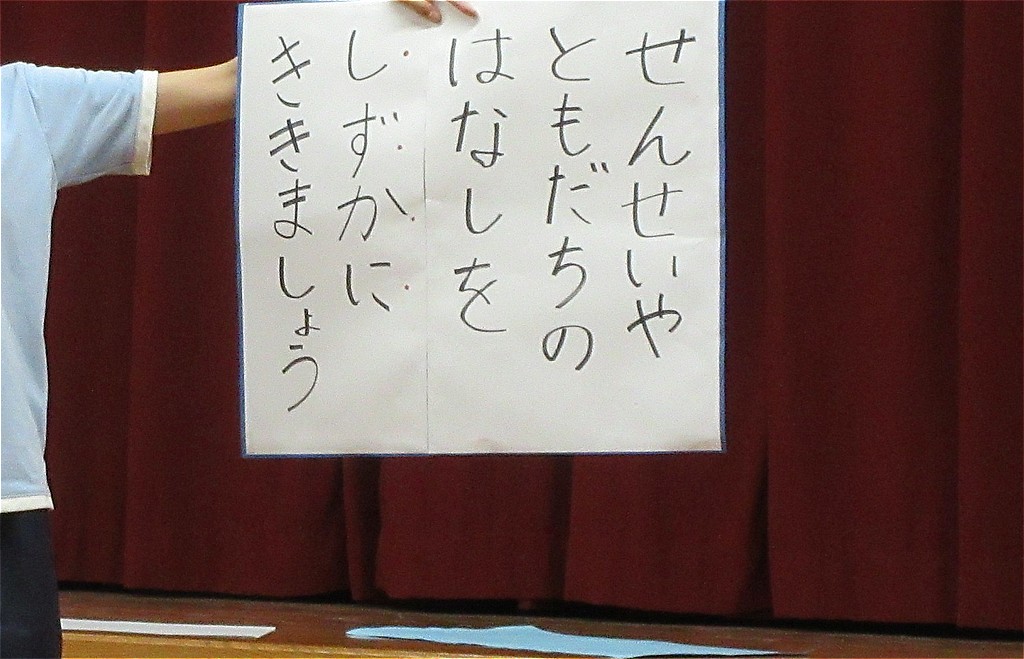 せんせいや
ともだちの
はなしを
しずかに
ききましょう